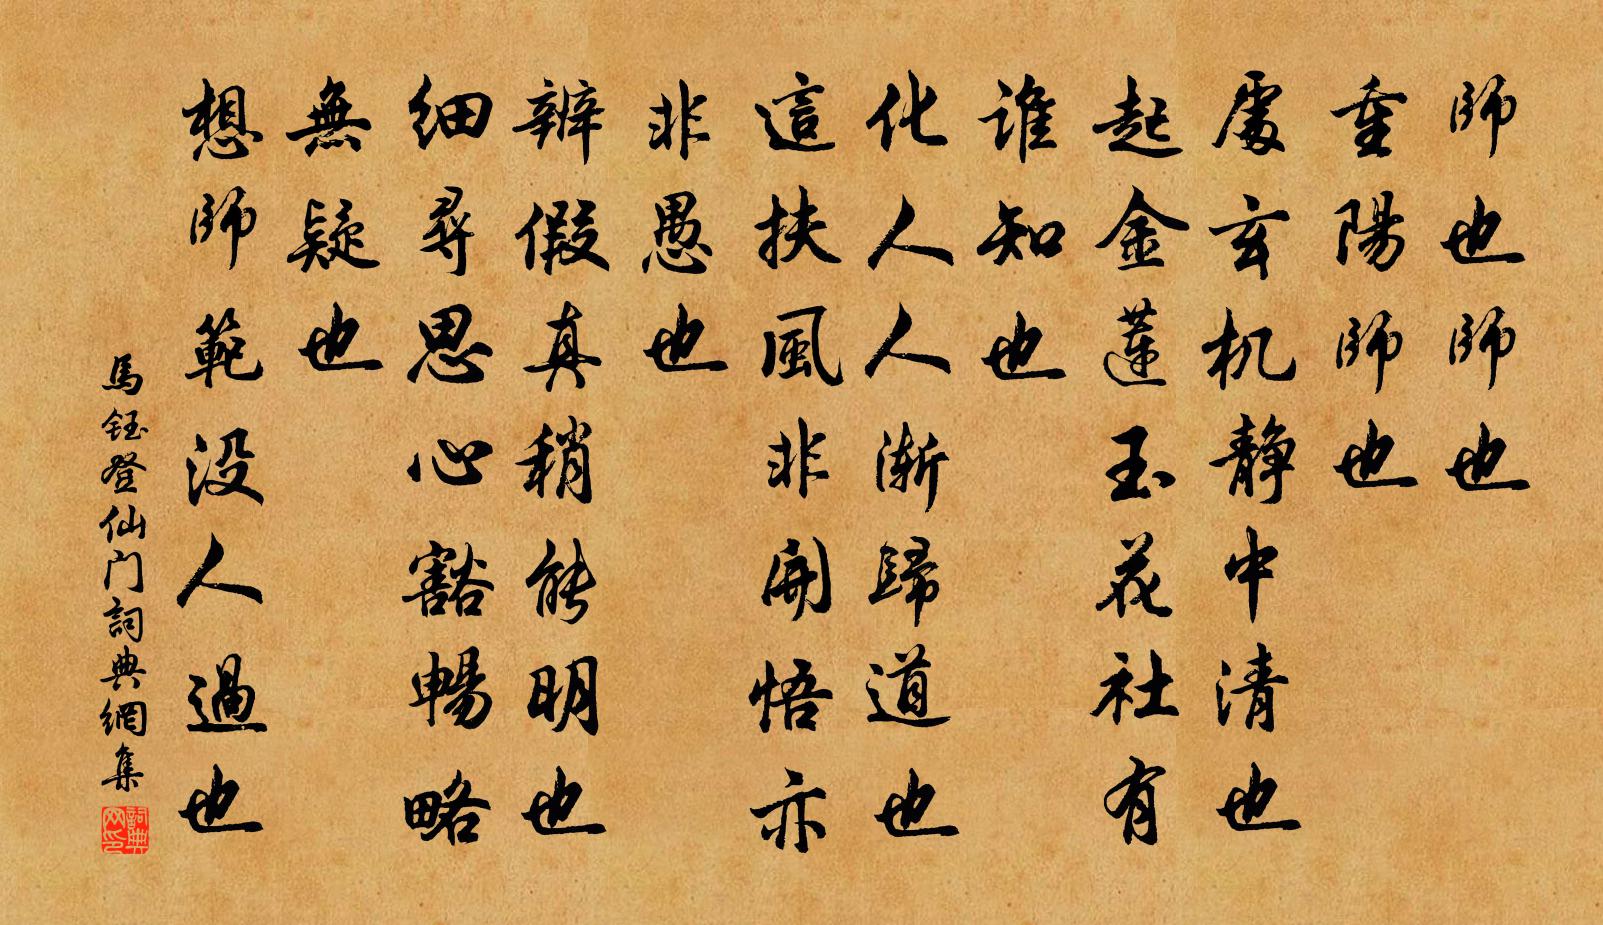 師也師也
重陽師也
處玄机靜中清也
起金蓮玉花社有
谁知也
化人人漸歸道也
這扶風非開悟亦
非愚也
辨假真稍能明也
細尋思心豁暢略
無疑也
想師範没人過也
馬鈺登仙门詞典網集
詞典网印